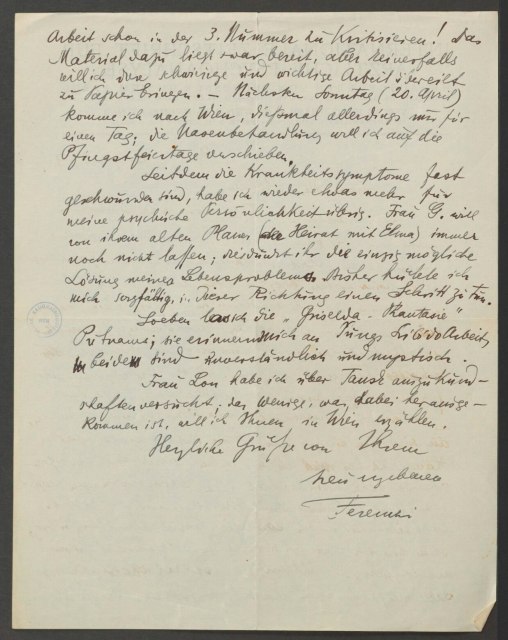 Arbeit schon in der 3. Nummer zu kritisieren! Das
Material dazu liegt zwar bereit, aber keinesfalls
will ich diese schwierige und wichtige Arbeit übereilt
zu Papier bringen. – Nächsten Sonntag (20. April)
komme ich nach Wien, diesmal allerdings nur für
einen Tag; die Nasenbehandlung will ich auf die
Pfingstfeiertage verschieben.
Seitdem die Krankheitssymptome fast
geschwunden sind, habe ich wieder etwas mehr für
meine psychische Persönlichkeit übrig. Frau G. will
von ihrem alten Plane (der Heirat mit Elma) immer
noch nicht lassen; sie dünkt ihr die einzig mögliche
Lösung meines Lebensproblems. Bisher hütete ich
mich sorgfältig, in dieser Richtung einen Schritt zu tun.
Soeben las ich die „Griselda-Phantasie"
Putnams; sie erinnert mich an Jungs Libidoarbeit,
beide sind unverständlich und mystisch.
Frau Lou habe ich über Tausk auszukund-
schaften versucht; das wenige, was dabei herausge-
kommen ist, will ich Ihnen in Wien erzählen.
Herzliche Grüße von Ihrem
treu ergebenen
Ferenczi